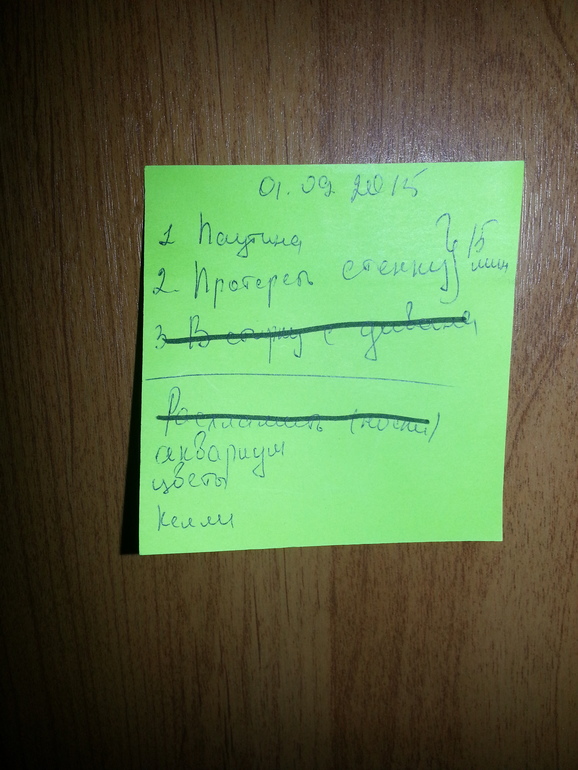 01.09.2015
1 Паутина
2. Протереть стенку } 15 мин
3. В стирку с дивана
Расхламить (носки)
аквариум
цветы
Келли